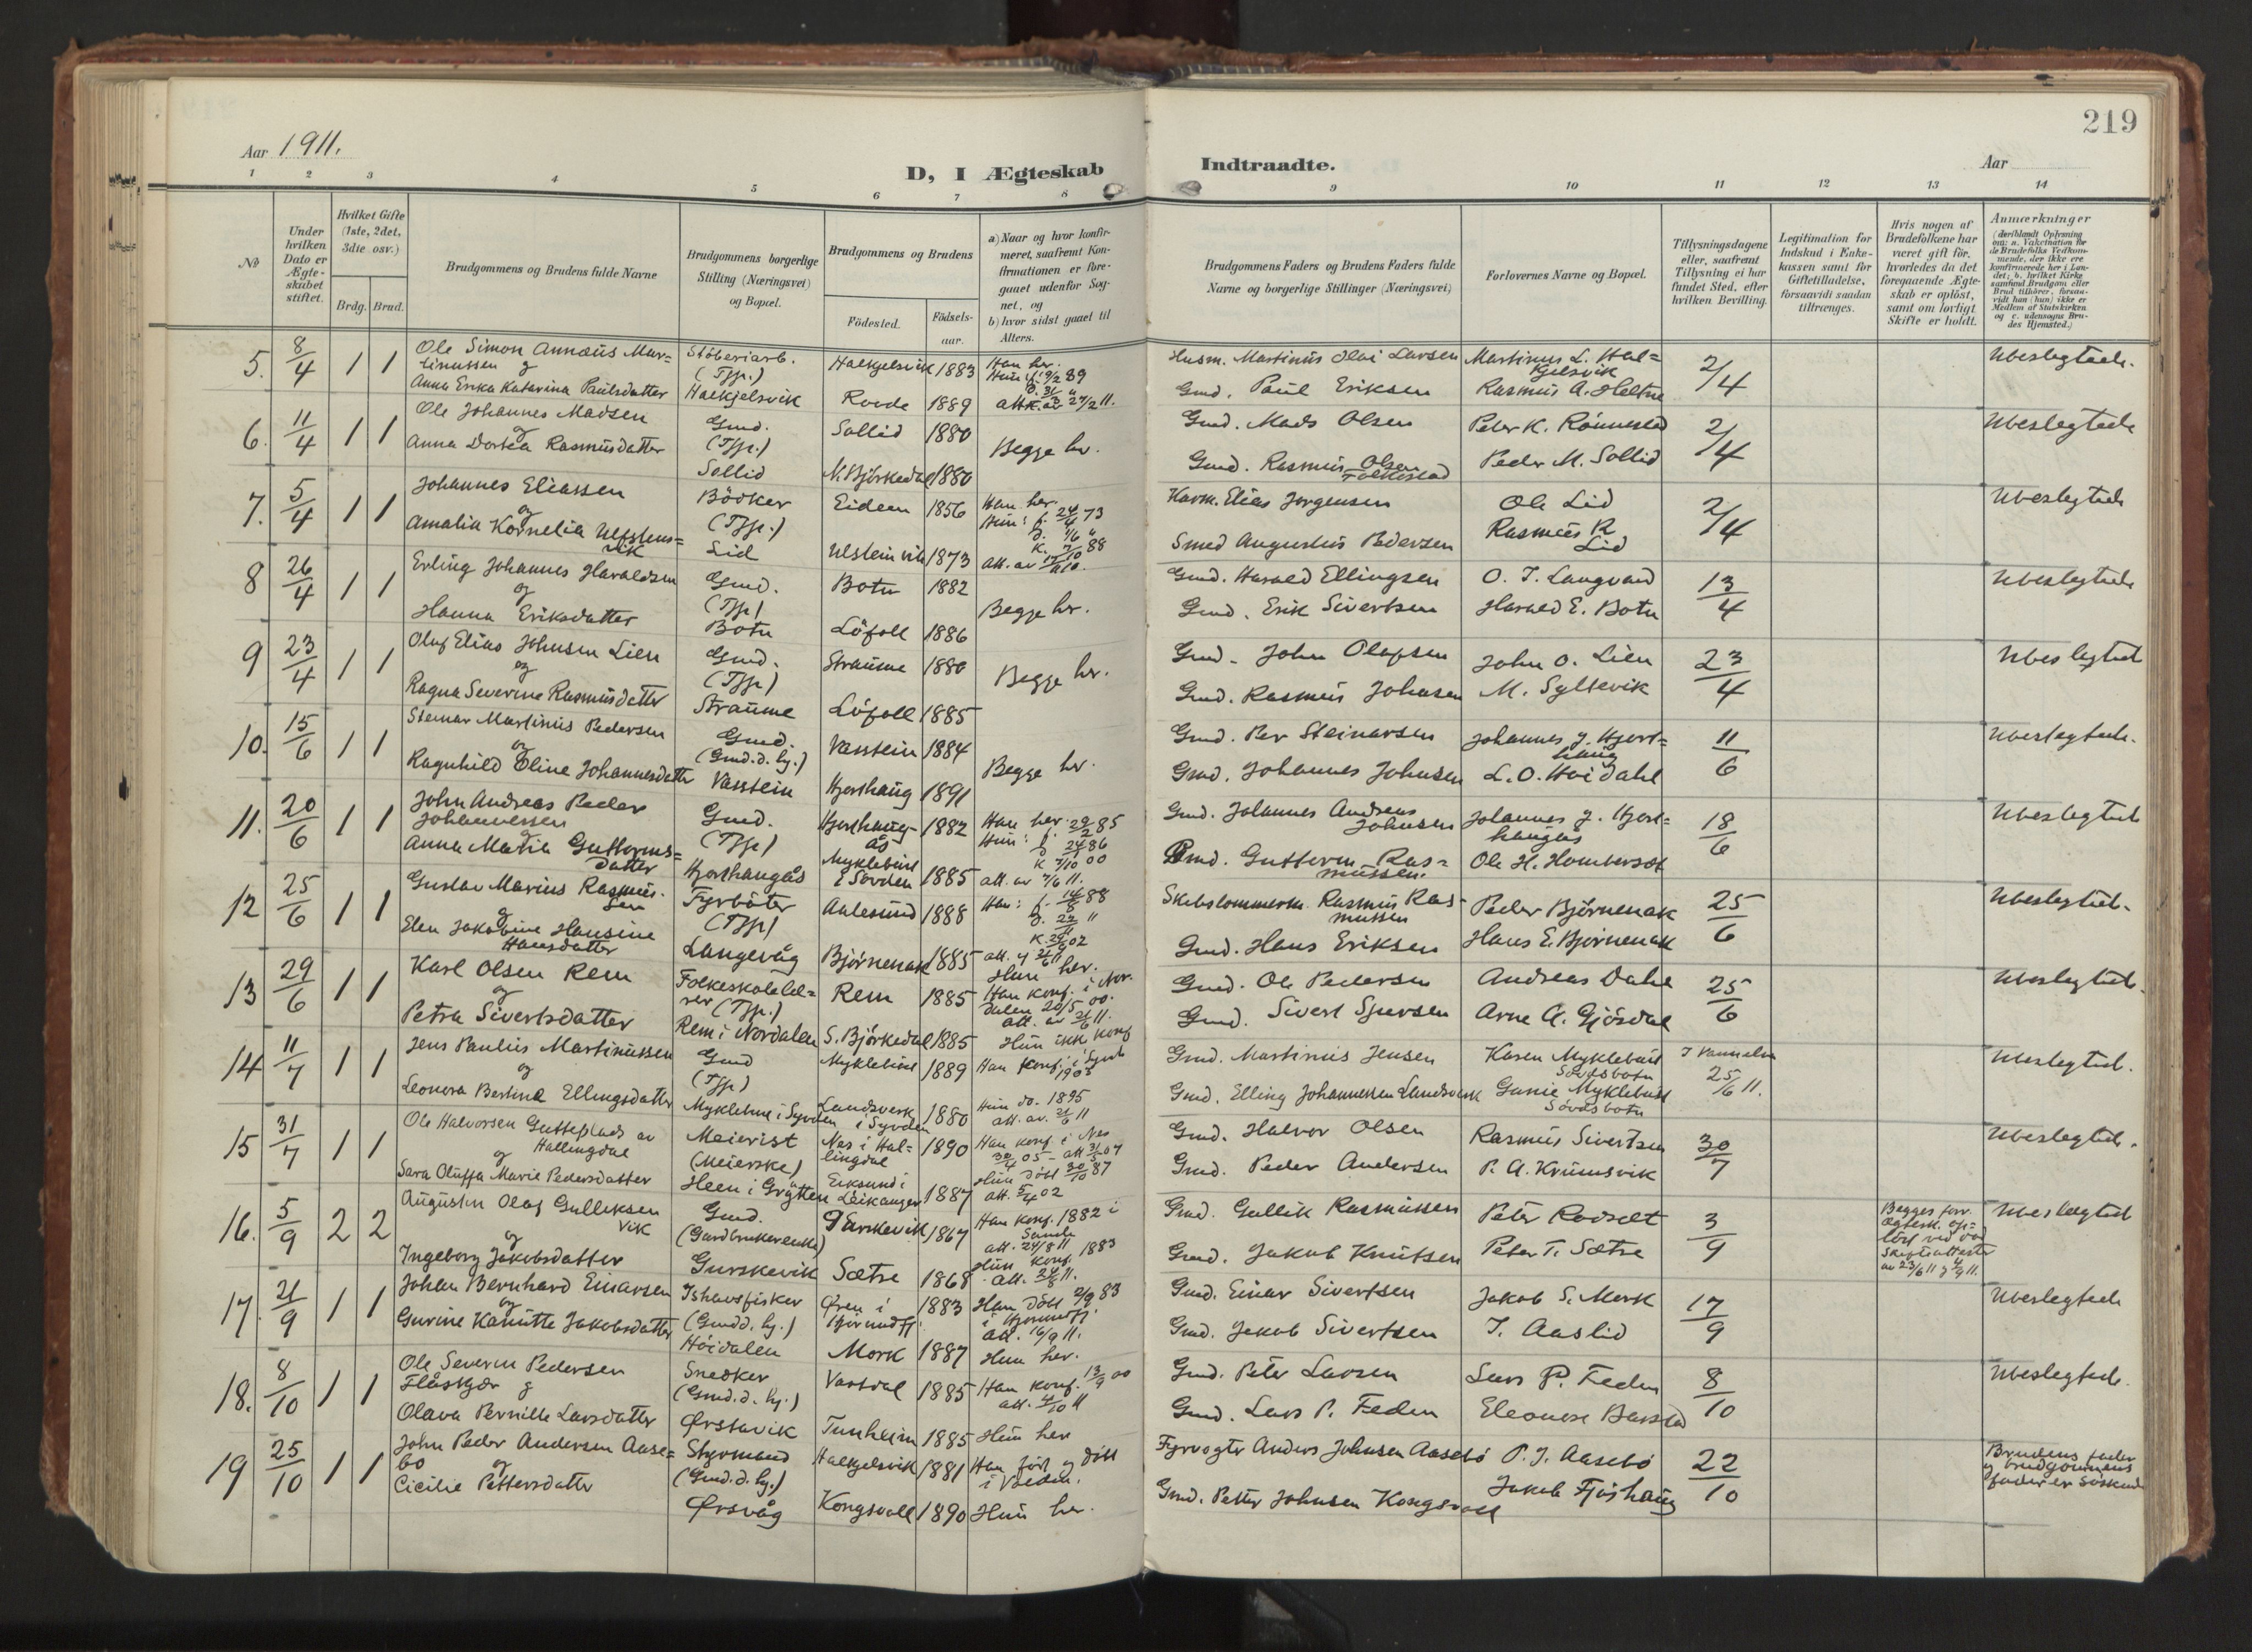 219
Aar 1911.
Aar
D, I Ægteskab Indtraadte.
1 2 3 4 5 6 7 8 9 10 11 12 13 14
№
Under hvilken Dato er Ægteskabet stiftet.
Hvilket Gifte (1ste, 2det, 3die osv.)
Brdg. Brud.
Brudgommens og Brudens fulde Navne
Brudgommens borgerlige Stilling (Næringsvei) og Bopæl.
Brudgommens og Brudens
Födested.
Födselsaar.
a) Naar og hvor konfirmeret, saafremt Konfirmationen er foregaaet udenfor Sognet, og
b) hvor sidst gaaet til Alters.
Brudgommens Faders og Brudens Faders fulde Navne og borgerlige Stillinger (Næringsvei)
Forlovernes Navne og Bopæl.
Tillysningsdagene eller, saafremt Tillysning ei har fundet Sted, efter hvilken Bevilling.
Legitimation for Indskud i Enkekassen samt for Giftetilladelse, forsaavidt saadan tiltrænges.
Hvis nogen af Brudefolkene har været gift för, hvorledes da det foregaaende Ægteskab er oplöst, samt om lovligt Skifte er holdt.
Anmærkninger
5. 8/4 1 1 Ole Simon Annæus Martinussen og Anna Erika Katarina Paulsdatter
Stöberiarb. (Tjp.) Halkjelsvik
Halkjelsvik 1883
1889
Han her.
Husm. Martinus Olai Larsen
Gmd. Paul Eriksen
Martinus L. Halkjelsvik
Rasmus A. Heltne
2/4
Ubeslegtede.
6. 11/4 1 1 Ole Johannes Madsen og Anna Dortea Rasmusdatter
Gmd. (Tjp.) Sollid
Sollid 1880
N. Bjørkedal 1880
Begge her.
Gmd. Mads Olsen
Gmd. Rasmus Olsen Folkestad
Peter K. Rönnestad
Peder M. Sollid
2/4
Ubeslegtede
7. 5/4 1 1 Johannes Eliassen og Amalia Kornelia Ulfstensvik
Bödker (Tjp.) Lid
Eideen 1856
Ulsteinvik 1873
Han her.
Elias Jorgensen
Smed Augustus Pedersen
Ole Lid
Rasmus R Lid
2/4
Ubeslegtede
8 26/4 1 1 Erling Johannes Haraldsen og Hanna Eriksdatter
Gmd. (Tjp) Botn
Botn 1882
Löfoll 1886
Begge her.
Gmd. Harald Ellingsen
Gmd. Erik Sivertsen
O. J. Langvand
Harald E. Botn
13/4
Ubeslegtede
9 23/4 1 1 Oluf Elias Johnsen Lien og Ragna Severine Rasmusdatter
Gmd. (Tjp) Straume
Straume 1880
Löfoll 1885
Begge her.
Gmd. John Olafsen
Gmd. Rasmus Johnsen
John O. Lien
M. Syltevik
23/4
Ubeslegted
10. 15/6 1 1 Steinar Martinus Pedersen og Ragnhild Oline Johannesdatter
Gmd. (Gmd.d. hj.) Vasstein
Vasstein 1884
Hjorthaug 1891
Begge her.
Gmd. Per Steinarsen
Gmd. Johannes Johnsen
Johannes J. Hjorthaug
L. O. Hovdahl
11/6
Ubeslegtede.
11. 20/6 1 1 John Andreas Peder Johannessen og Anna Maria Guttormsdatter
Gmd. (Tjp) Hjorthaugås
Hjorthaugås 1882
Myklebust i Sövden 1885
Gmd. Johannes Andreas Johnsen
Gmd. Guttorm Rasmussen.
Johannes J. Hjorthaugås
Ole H. Homberset
18/6
Ubeslegted
12 25/6 1 1 Gustav Marius Rasmussen og Elen Jakobine Hansine Hansdatter
Fyrböter (Tjp) Langevåg
Aalesund 1888
Björnenak 1885
Skibstömmerm. Rasmus Rasmussen
Gmd. Hans Eriksen
Peder Björnenak
Hans E. Björnenak
25/6
Ubeslegted.
13 29/6 1 1 Karl Olsen Rem og Petra Sivertsdatter
Folkeskolelærer (Tjp.) Rem i Nordalen
Rem 1885
S. Björkedal 1885
Hun her. Han konf. i Nordalen 20/5 00.
Gmd. Ole Pedersen
Gmd. Sivert Sjursen
Andreas Dahl
Arne A. Gjösdal
25/6
Ubeslegted.
14 11/7 1 1 Jens Paulus Martinussen og Leonora Bertine Ellingsdatter
Gmd (Tjp) Myklebust i Syvden
Myklebust 1889
Landsverk i Syvden 1880
Hun ikke konf
Han konf. i Syvd 1903
Hun do. 1895 att. av. 21/6 11
Gmd. Martinus Jensen
Gmd. Elling Johannessen Landsverk
Karen Myklebust Sövdsbotn
Gunie Myklebust Sövdsbotn
I Vannelven 25/6 11.
Ubeslegted.
15 31/7 1 1 Ole Halvorsen Gutteplads av Hallingdal og Sara Oluffa Marie Pedersdatter
Meierist (Meierske) Heen i Grytten
Nes i Hallingdal 1890
Eiksund i Leikanger 1887
Han konf. i Nes 30/4 05 - att 31/5 07
Hun döbt 30/10 87 att. 5/4 02
Gmd. Halvor Olsen
Gmd. Peder Andersen
Rasmus Sivertsen
P. A. Krumsvik
30/7
Ubeslegted.
16. 5/9 2 2 Augustin Olaf Gulliksen vik og Ingeborg Jakobsdatter
Gmd. (Gardbrukerenke) Gurskevik
Gurskevik 1867
Sætre 1868
Han konf. 1882 i Sande att. 24/8 11
Hun konf. 1883 att. 24/8 11.
Gmd. Gullik Rasmussen
Gmd. Jakob Knutsen
Peter Rodselt
Peter T. Sætre
3/9
Begges forr. ægtesk. oplöst ved död
Skifteattester av 23/6 11 g 4/9 11.
Ubeslægted
17. 21/9 1 1 Johan Bernhard Einarsen og Gurine Kanutte Jakobsdatter
Ishavsfisker (Gmdd. hj.) Höidalen
Øren i Hjörundfj. 1883
Mork 1887
Han döbt 2/9 83 i Hjörundfj. att. 16/9 11.
Hun her.
Gmd. Einar Sivertsen
Gmd. Jakob Sivertsen
Jakob S. Mork
I. Aaslid
17/9
Ubeslegtede
18. 8/10 1 1 Ole Severin Pedersen Flåskjær g Olava Pernille Larsdatter
Snedker (Gmd.d. hj.) Ørstavik
Vartdal 1885
Tunheim 1885
Han konf. 13/9 00 att. 4/10 11
Hun her
Gmd. Peter Larsen
Gmd. Lars P. Feden
Lars P. Feden
Eleonore Barstad
8/10
Ubeslegtede.
19 25/10 1 1 John Peder Andersen Aasebö og Cicilie Pettersdatter
Styrmand (Gmd.d. hj.) Ørsvåg
Halkjelsvik 1881
Kongsvoll 1890
Han föd g döbt
Hun her.
Fyrvogter Anders Johnsen Aasebö
Gmd. Petter Johnsen Kongsvoll
P. J. Aasebö
Jakob Fjöshaug
22/10
Brudens fader g brudgommens fader er söskende